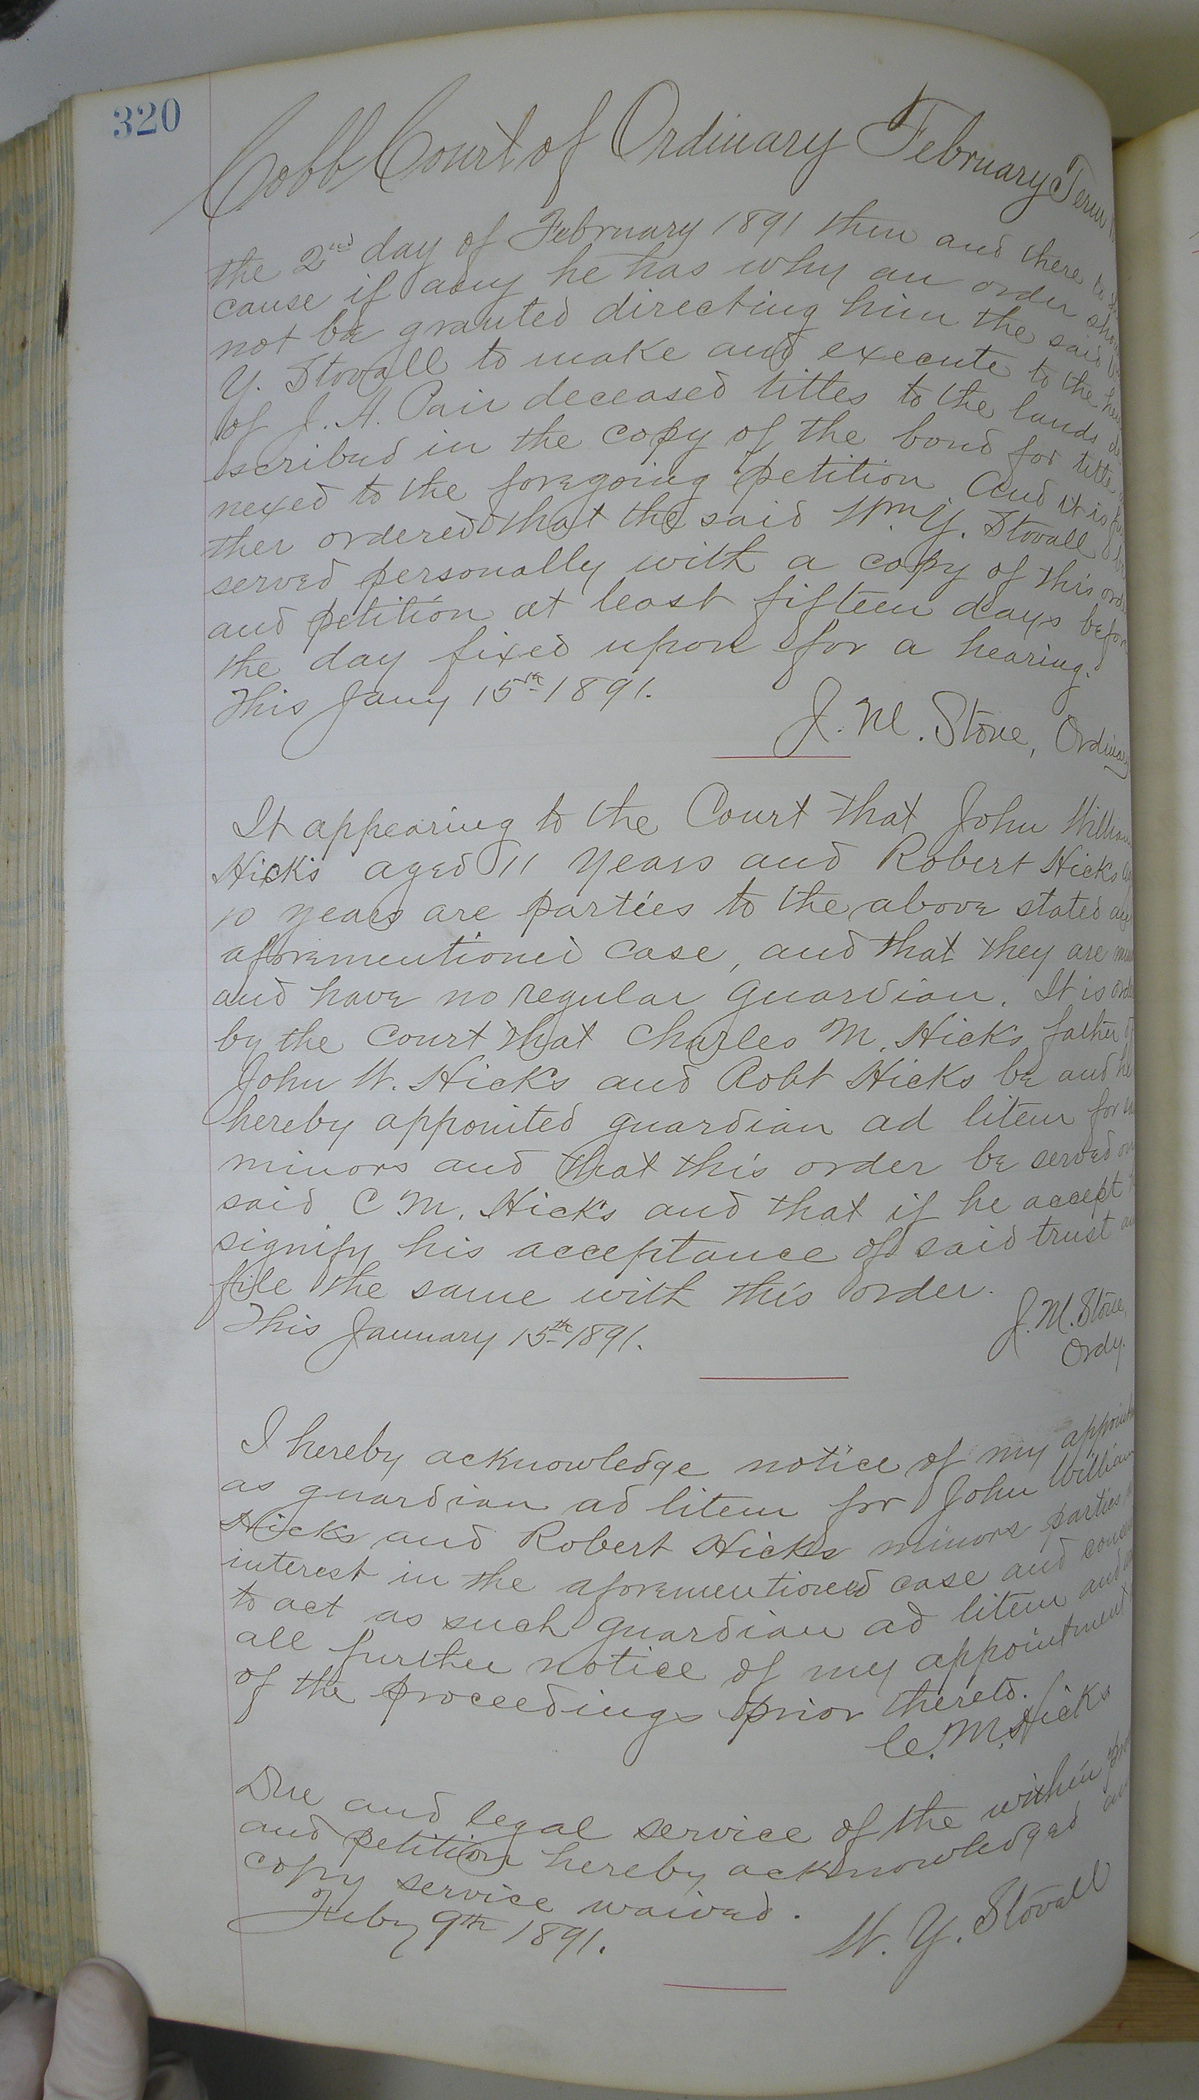 320
Cobb Court of Ordinary February Term
the 2nd day of February 1891 then and there to
cause if any he has why an order
not be granted directing him the said
Y. Stovall to make and execute to the
of J. A. Pair deceased titles to the lands
scribed in the copy of the bond for title
nexed to the foregoing petition And it is
ther ordered that the said Wm Y. Stovall
served personally with a copy of this
and petition at least fifteen days
the day fixed upon for a hearing.
This Jany 15th 1891.
J. M. Stone, Ordinary
It appearing to the Court that John William
Hicks aged 11 years and Robert Hicks
10 years are parties to the above stated
aforementioned case, and that they are
and have no regular guardian. It is
by the Court that Charles M. Hicks father
John W. Hicks and Robt Hicks be and
hereby appointed guardian ad litem for
minors and that this order be served
said C M. Hicks and that if he accept
signify his acceptance of said trust
file the same with this order.
This January 15th 1891.
J. M. Stone,
Ordy.
I hereby acknowledge notice of my
as guardian ad litem for John William
Hicks and Robert Hicks minors parties
interest in the aforementioned case and
to act as such guardian ad litem and
all further notice of my appointment
of the proceedings prior thereto.
C. M. Hicks
Due and legal service of the within
and petition hereby acknowledged
copy service waived.
Feby 9th 1891.
W. Y. Stovall